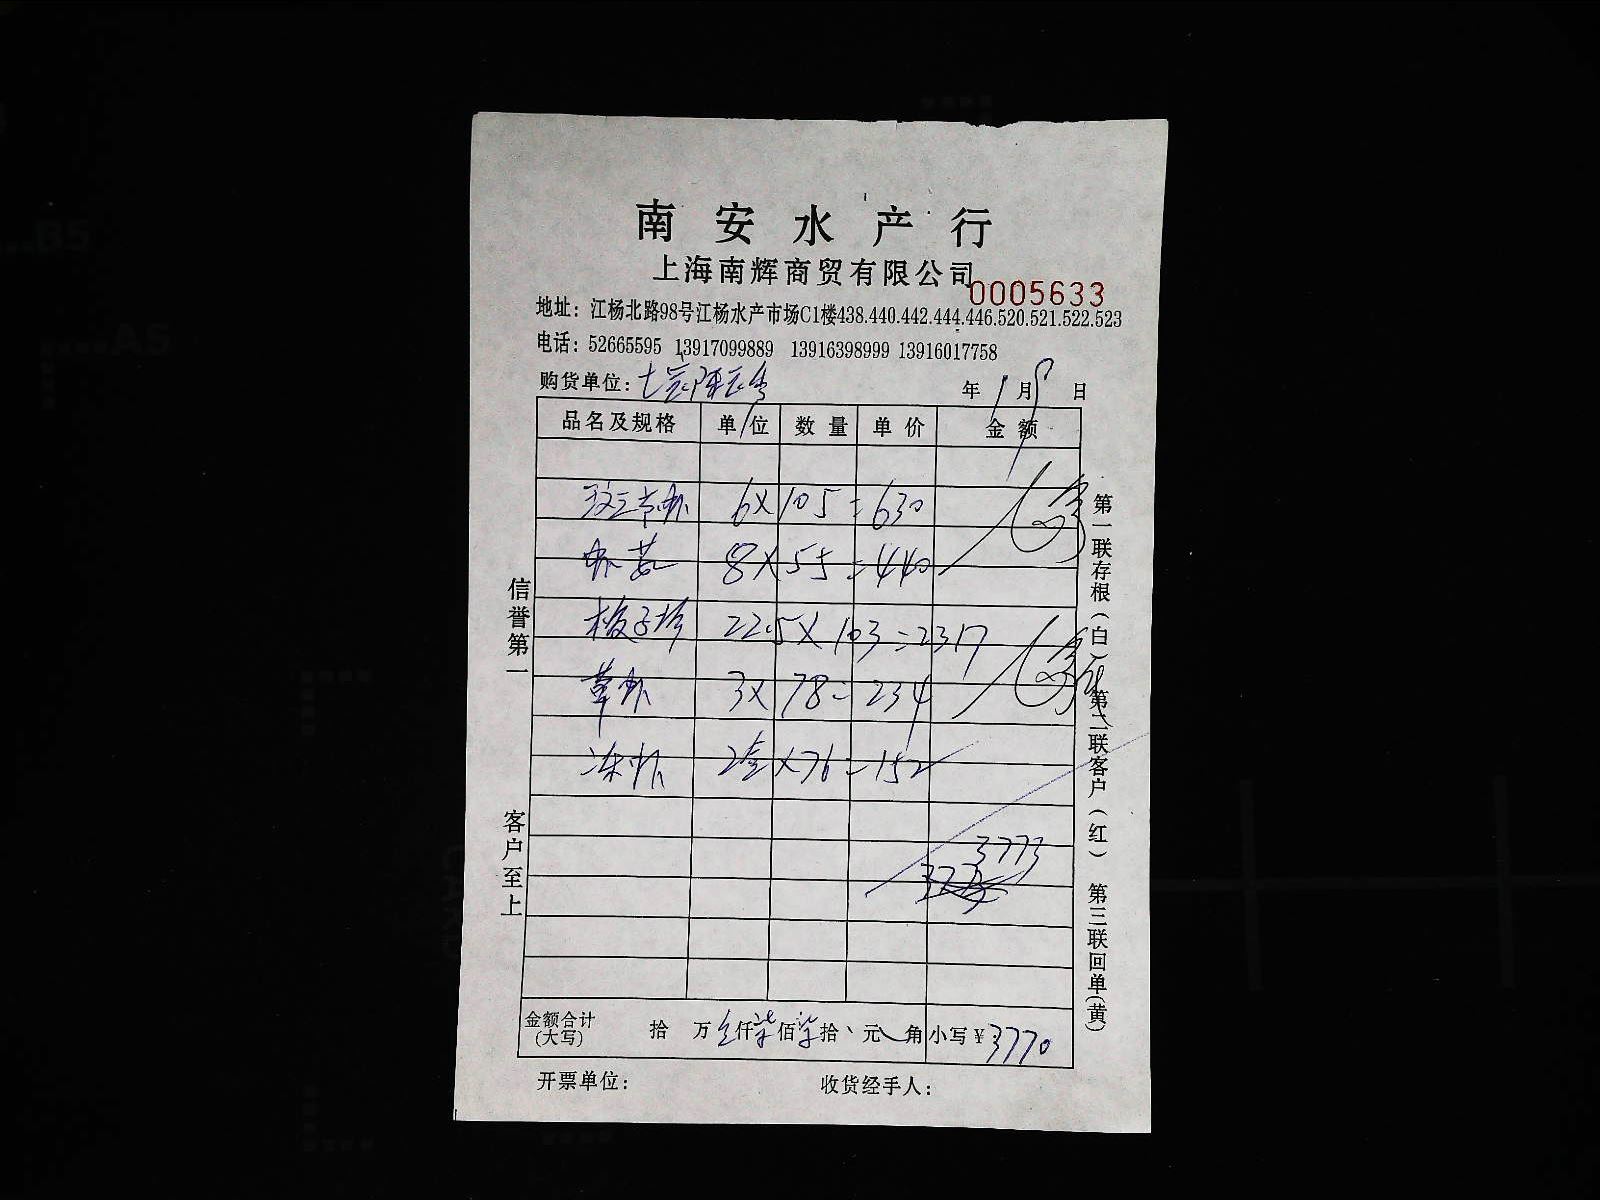 南安水产行
上海南辉商贸有限公司
0005633
地址：江杨北路98号江杨水产市场C1楼438.440.442.444.446.520.521.522.523
电话：52665595 13917099889 13916398999 13916017758
购货单位：
年1月9日
品名及规格 单位 数量 单价 金额
6×105=630
虾 8×55=440
板子 22.5×103=2317
草虾 3×78=234
冻虾 2盒×76=152
3773
金额合计(大写) 拾万叁仟柒佰柒拾元角 小写￥3770
开票单位： 收货经手人：
信誉第一
客户至上
第一联存根(白) 第二联客户(红) 第三联回单(黄)